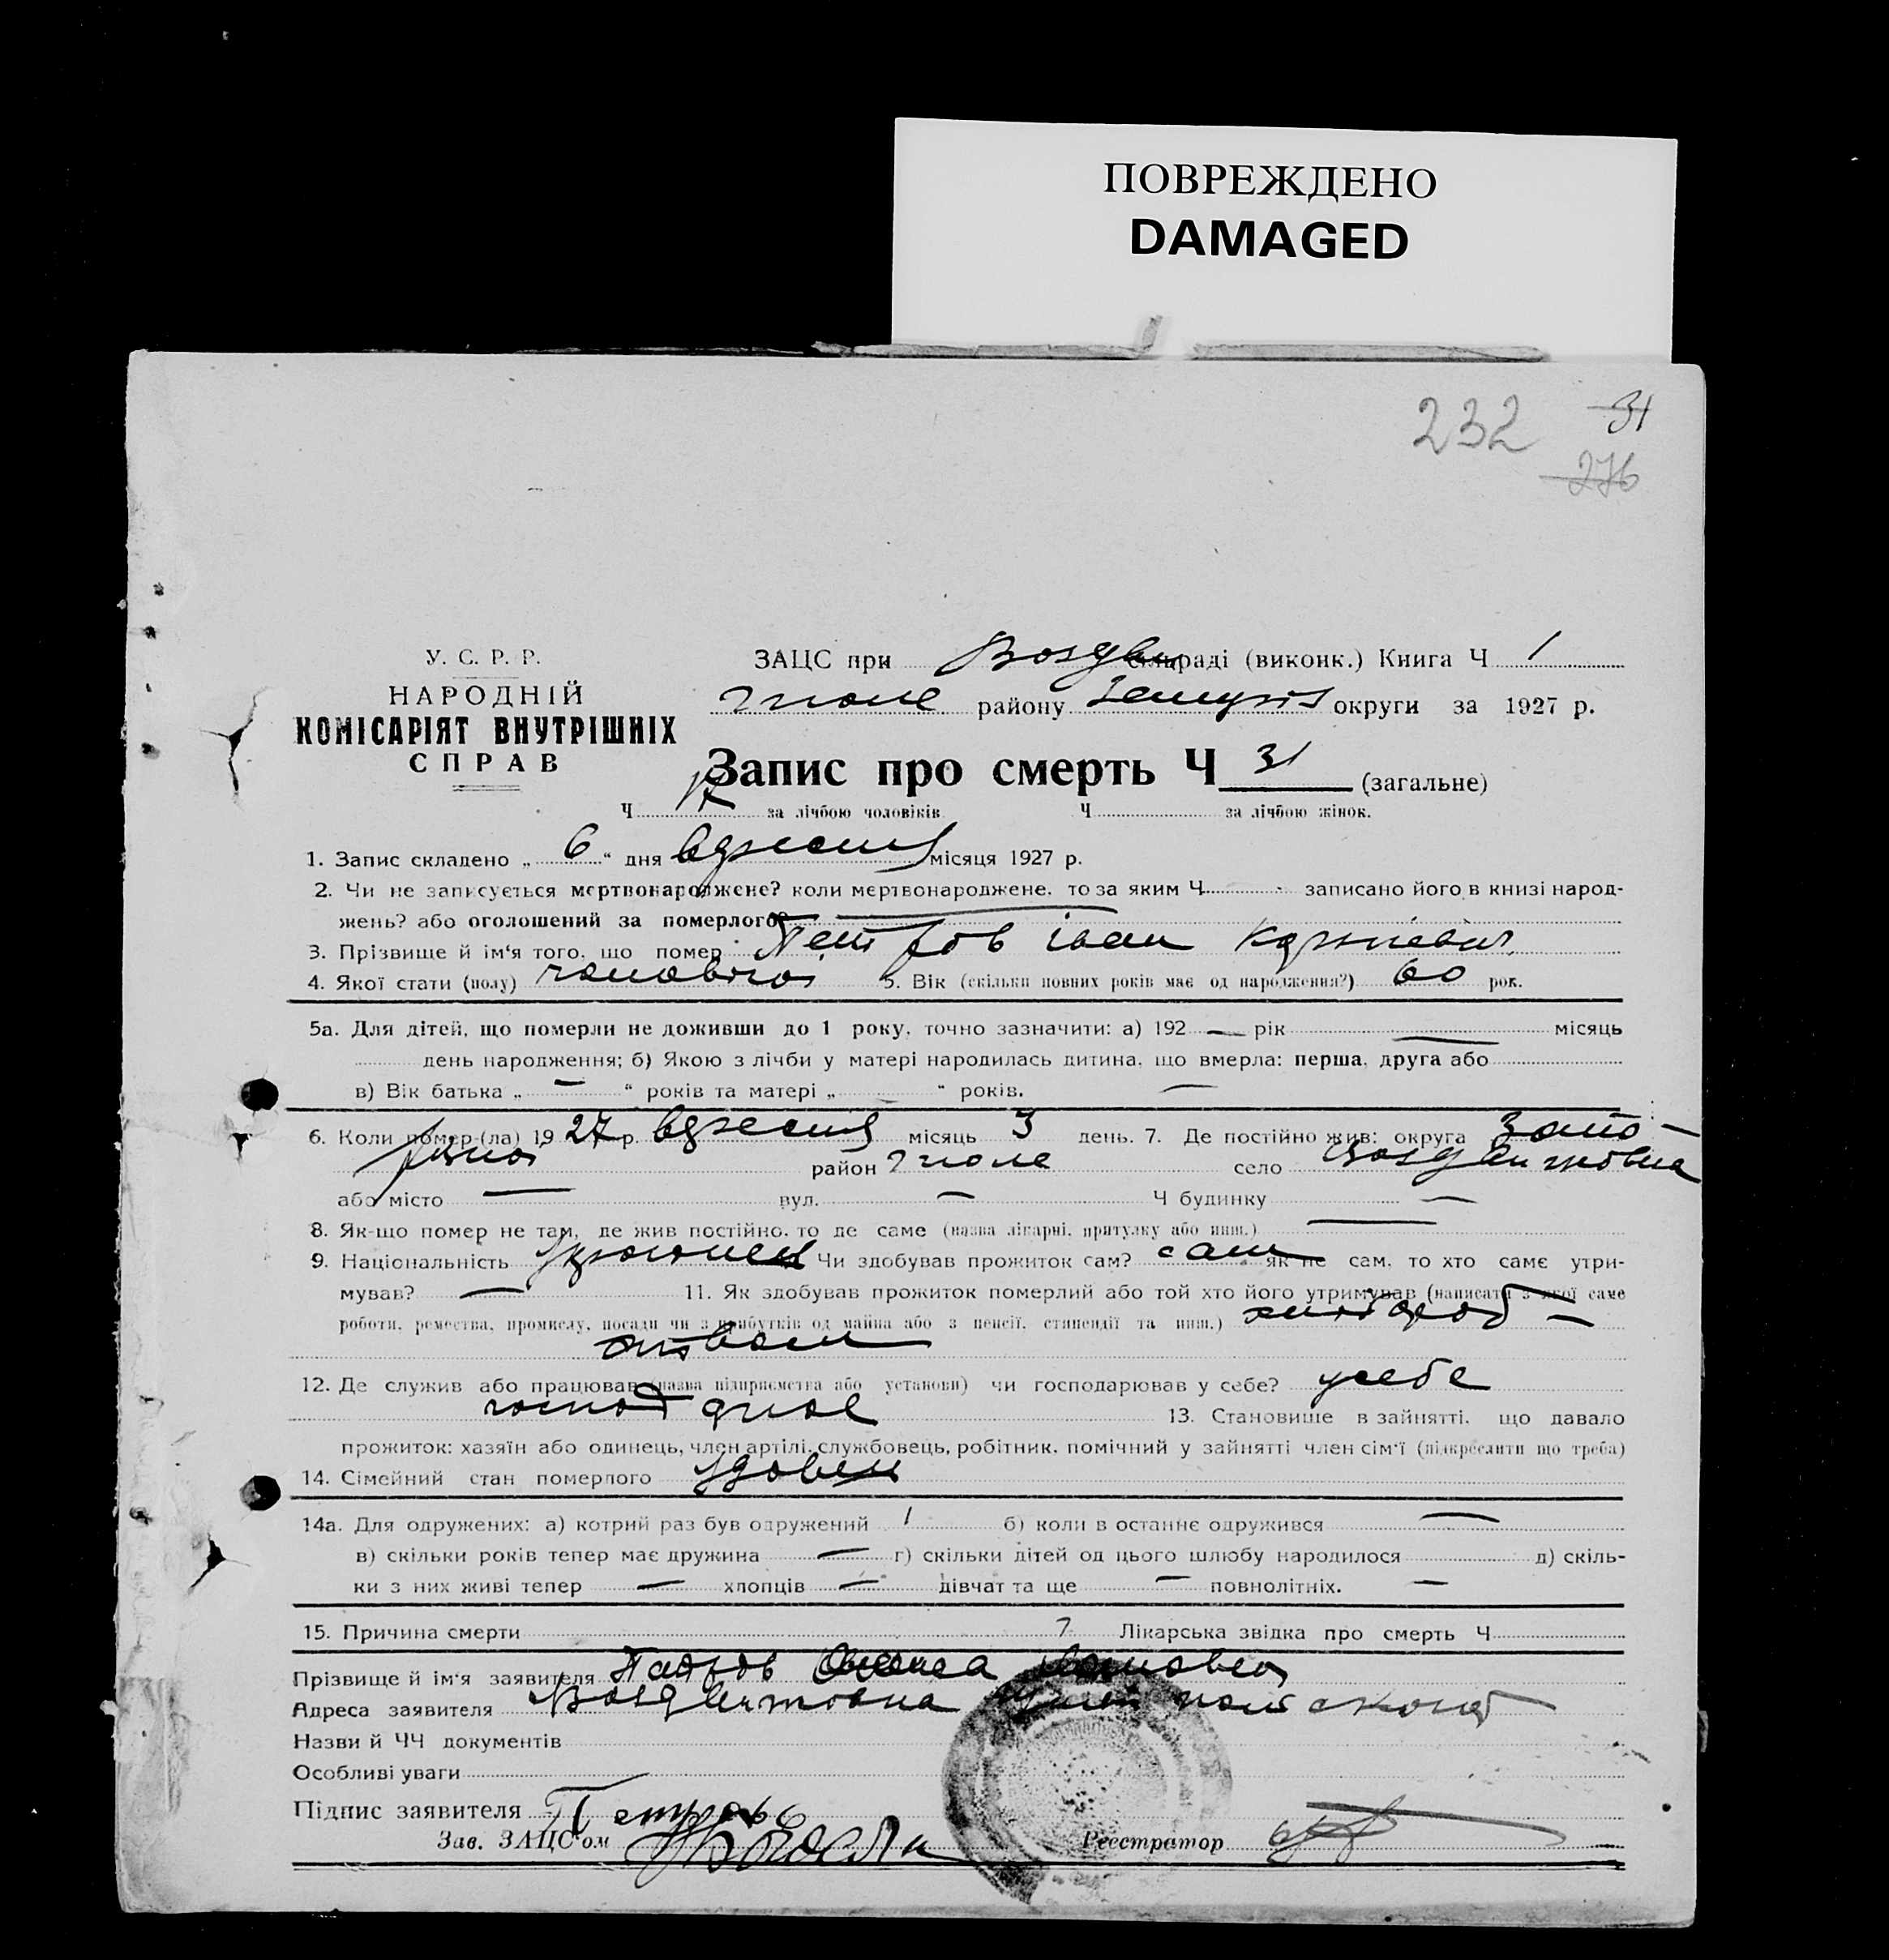 ПОВРЕЖДЕНО
DAMAGED
232 31
276
У. С. Р. Р.
НАРОДНІЙ
КОМІСАРІЯТ ВНУТРІШНІХ
СПРАВ
ЗАЦС при сільраді (виконк.) Книга Ч 1
району округи за 1927 р.
Запис про смерть Ч 31 (загальне)
Ч за лічбою чоловіків Ч за лічбою жінок.
1. Запис складено „ 6 “ дня вересня місяця 1927 р.
2. Чи не записується мертвонароджене? коли мертвонароджене, то за яким Ч записано його в книзі народ-
жень? або оголошений за померлого?
3. Прізвище й ім‘я того, що помер Петров Іван
4. Якої стати (полу) чоловічої 5. Вік (скільки повних років має од народження?) 60 рок.
5а. Для дітей, що померли не доживши до 1 року, точно зазначити: а) 192 — рік — місяць
день народження; б) Якою з лічби у матері народилась дитина, що вмерла: перша, друга або
в) Вік батька „ — “ років та матері „ “ років. —
6. Коли помер-(ла) 1927 р. вересня місяць 3 день. 7. Де постійно жив: округа Запо-
різька район село Воздвижовка
або місто — вул. — Ч будинку —
8. Як-що помер не там, де жив постійно, то де саме (назва лікарні, притулку або инш.) —
9. Національність Чи здобував прожиток сам? сам як не сам, то хто саме утри-
мував? — 11. Як здобував прожиток померлий або той хто його утримував (написати з якої саме
роботи, ремества, промислу, посади чи з прибутків од майна або з пенсії, стипендії та инш.) хлібороб-
ством
12. Де служив або працював (назва підприємства або установи) чи господарював у себе? у себе
13. Становище в зайнятті, що давало
прожиток: хазяїн або одинець, член артілі, службовець, робітник, помічний у зайнятті член сім‘ї (підкреслити що треба)
14. Сімейний стан померлого удовец
14а. Для одружених: а) котрий раз був одружений 1 б) коли в останнє одружився —
в) скільки років тепер має дружина — г) скільки дітей од цього шлюбу народилося д) скіль-
ки з них живі тепер — хлопців — дівчат та ще — повнолітніх. —
15. Причина смерти ? Лікарська звідка про смерть Ч
Прізвище й ім‘я заявителя
Адреса заявителя
Назви й ЧЧ документів
Особливі уваги
Підпис заявителя
Зав. ЗАЦС‘ом Реєстратор